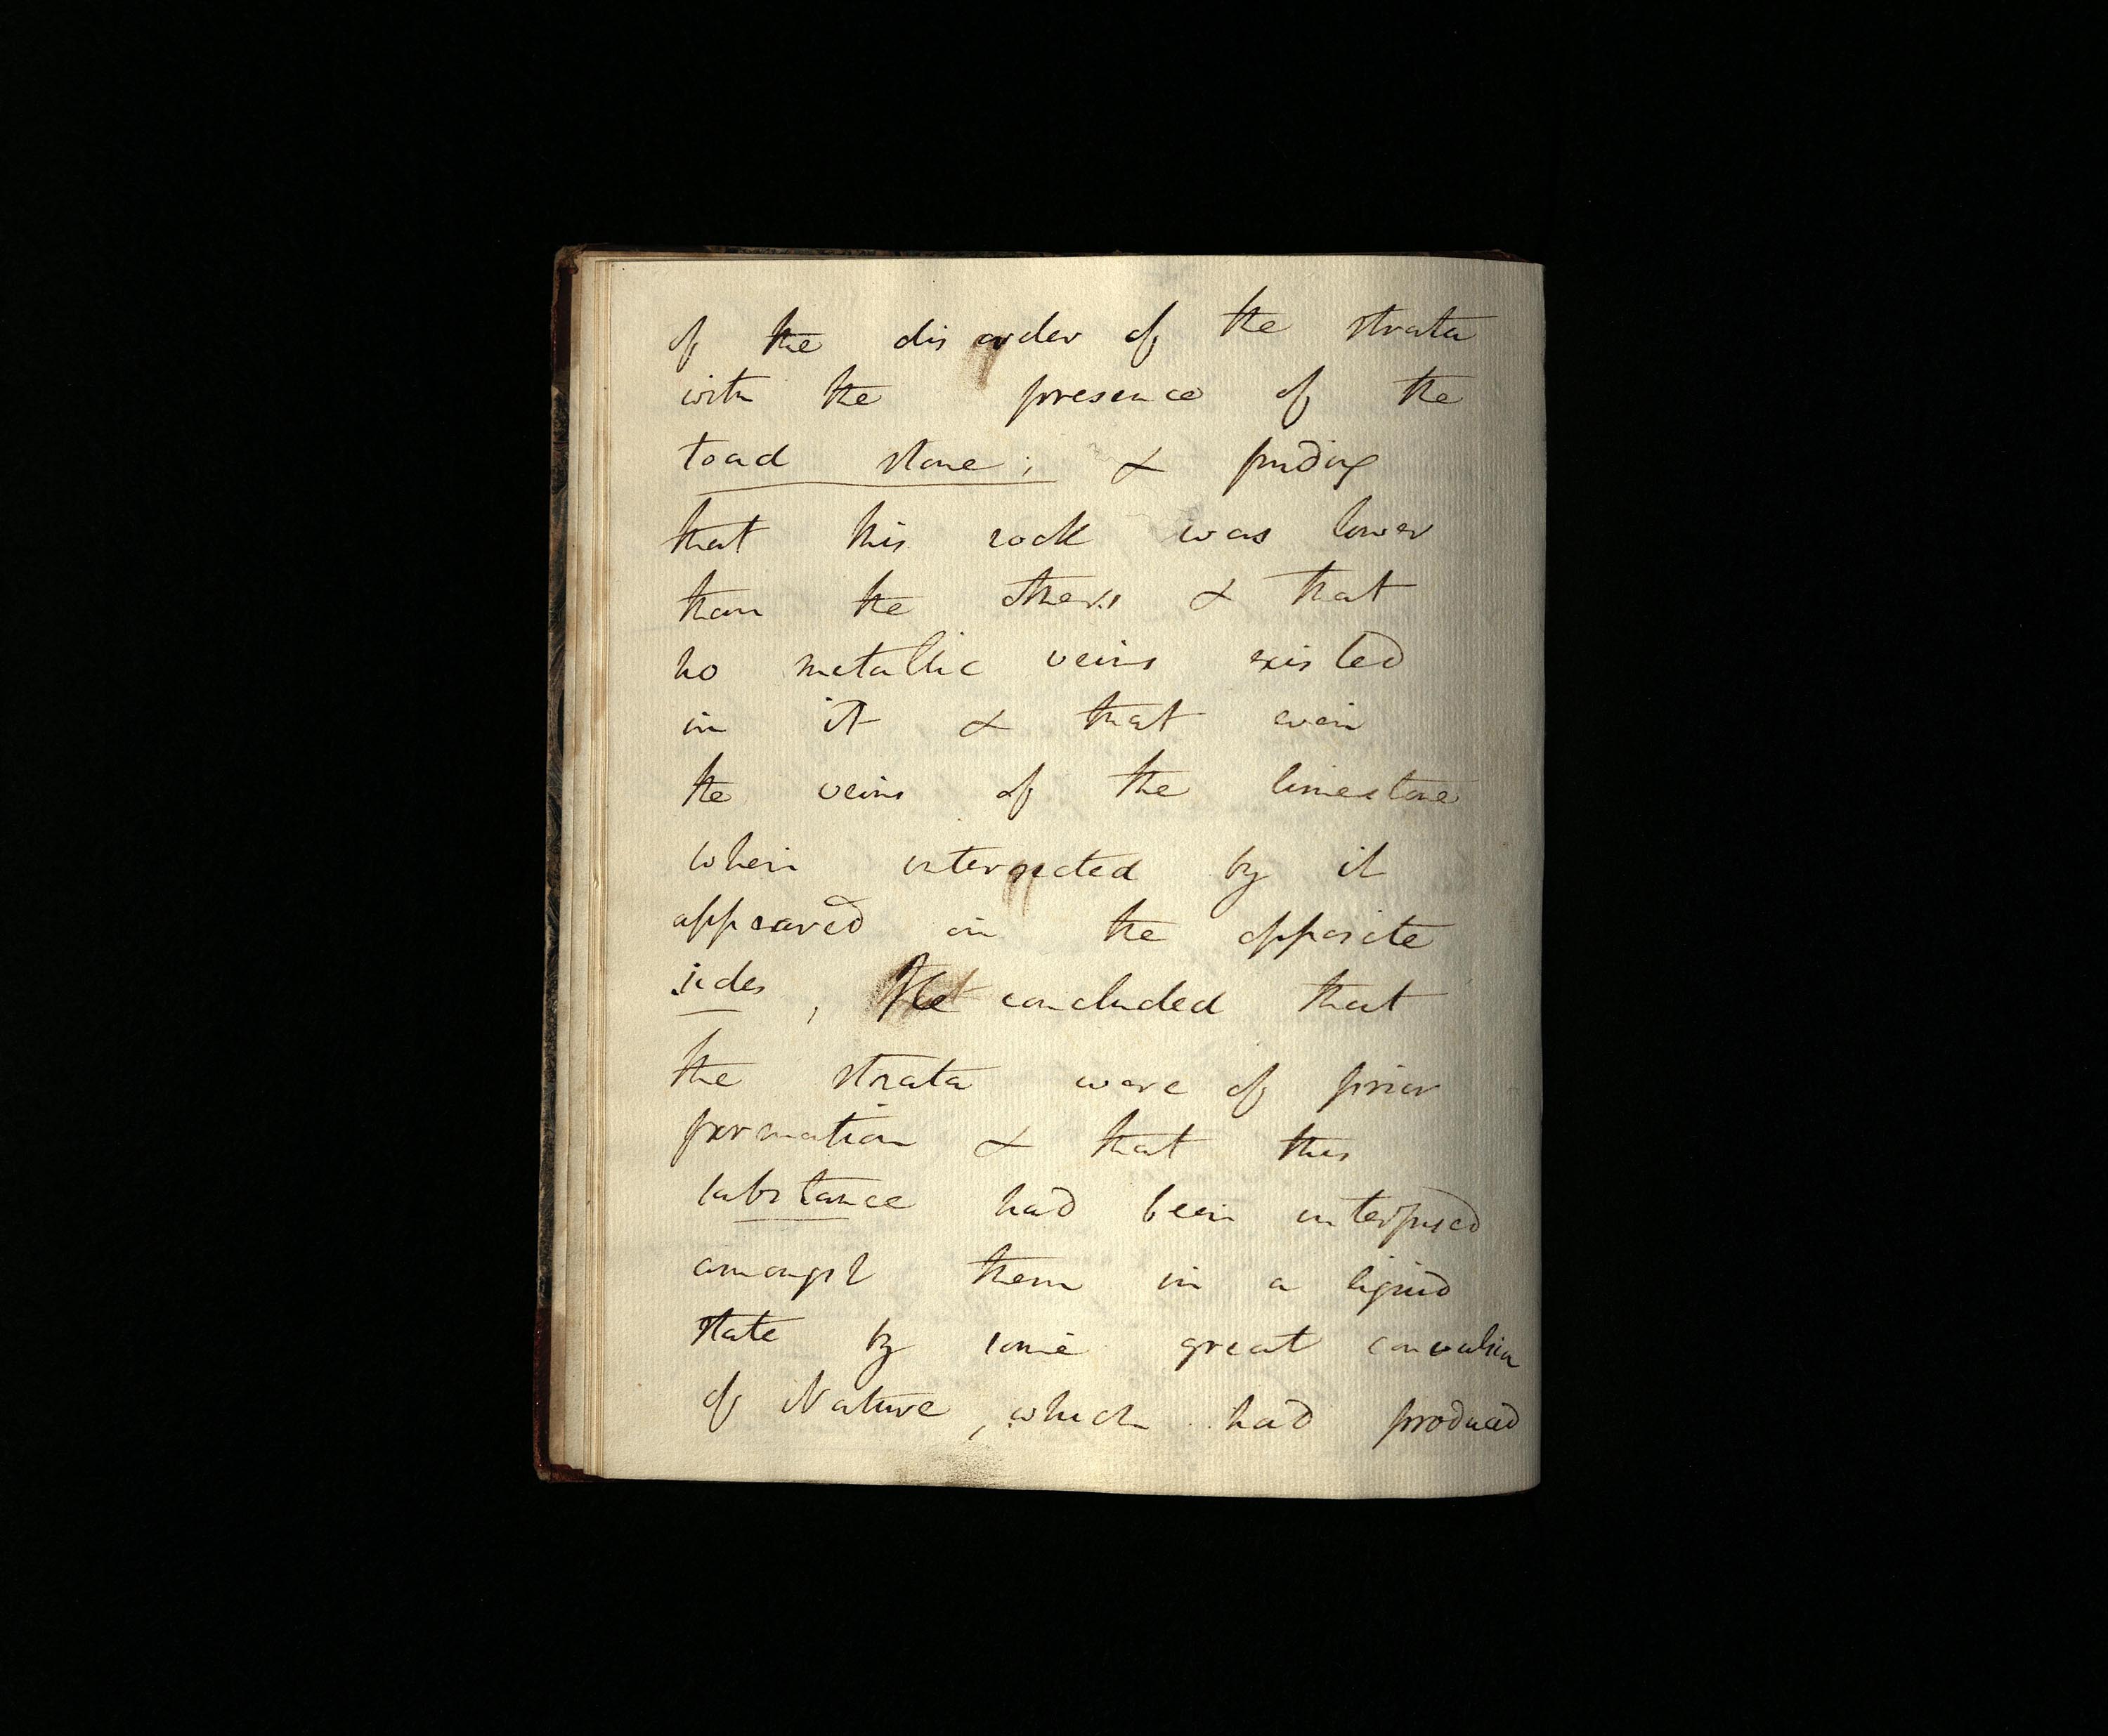 of the disorder of the strata
with the presence of the
toad stone; & finding
that this rock was lower
than the others & that
no metallic veins existed
in it & that even
the veins of the limestone
when intersected by it
appeared on the opposite
sides, He concluded that
the strata were of prior
formation & that this
substance had been interfused
amongst them in a liquid
state by some great convulsion
of Nature, which had produced